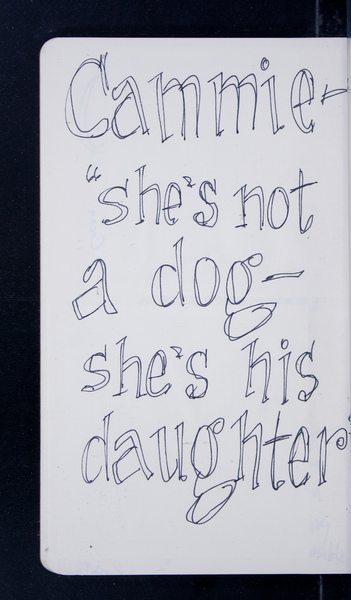 Cammie-
"she's not
a dog-
she's his
daughter"